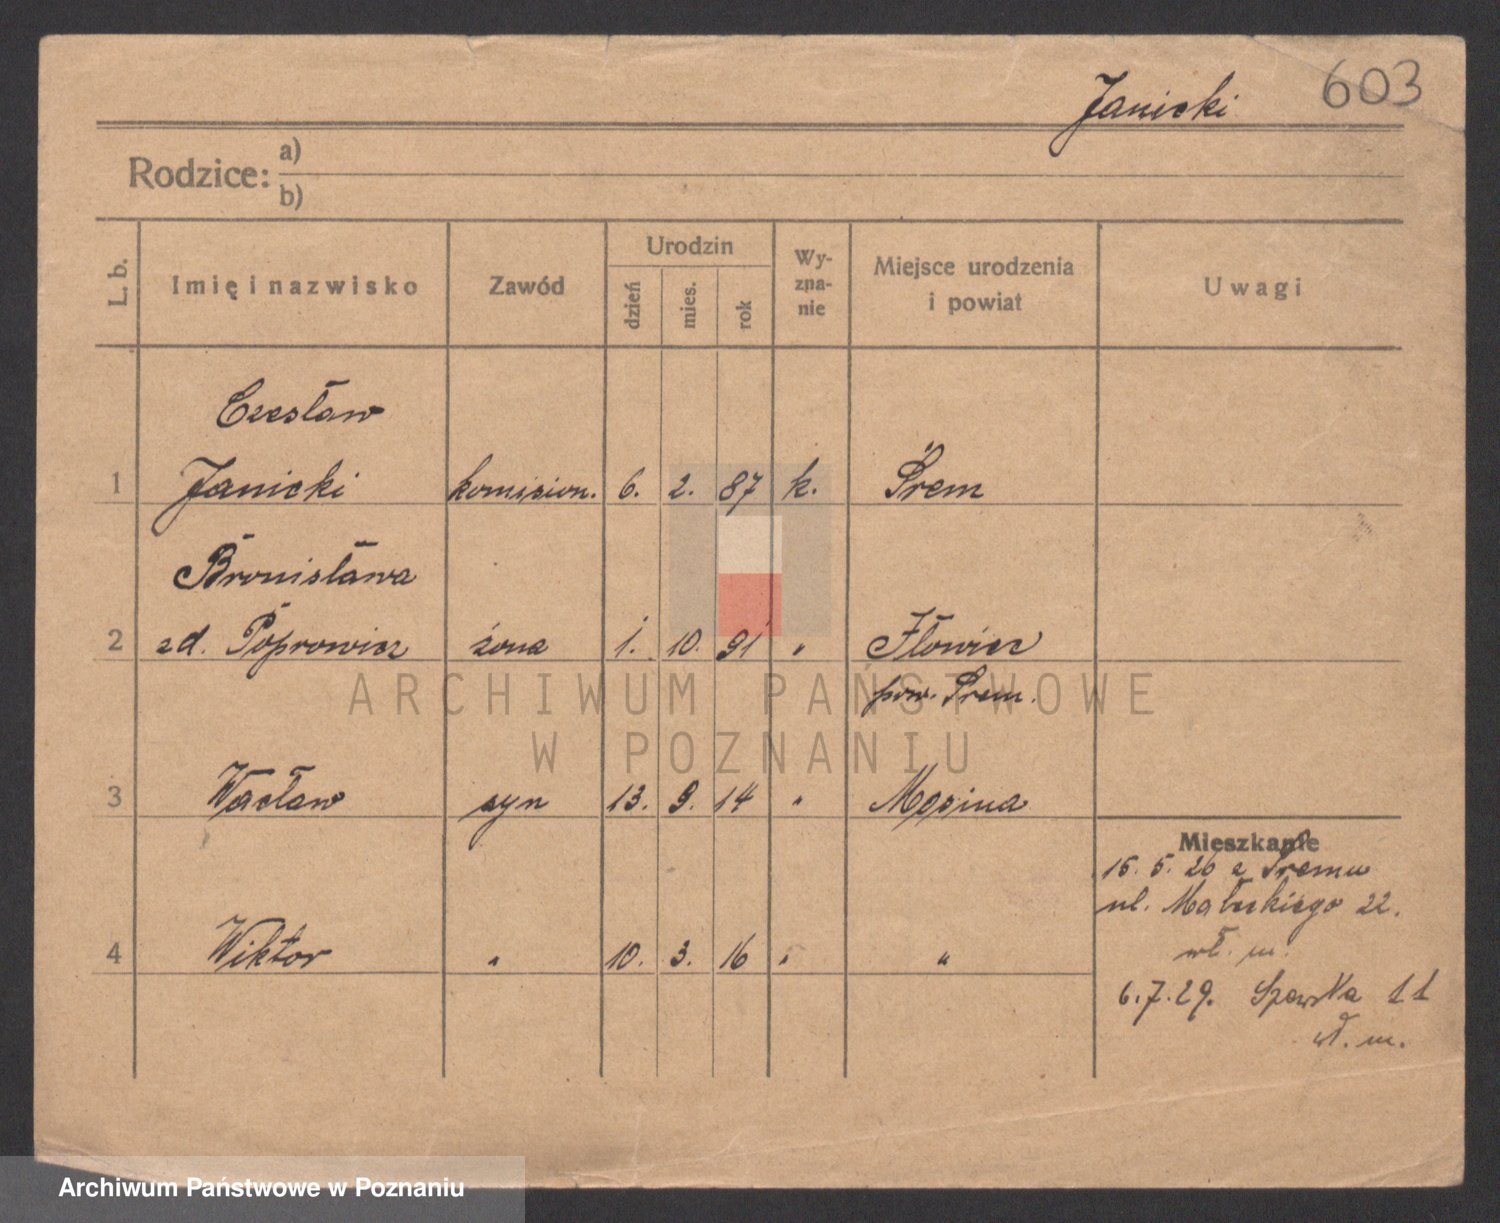 603
Janicki
Rodzice: a)
b)
L. b.
Imię i nazwisko
Zawód
Urodzin
dzień
mies.
rok
Wy-
zna-
nie
Miejsce urodzenia
i powiat
Uwagi
Czesław
1 Janicki komision. 6. 2. 87 k. Śrem
Bronisława
2 zd. Poprowicz żona 1. 10. 91 "
pow. Śrem.
3 Wacław syn 13. 9. 14 "
4 Wiktor " 10. 3. 16 " "
Mieszkanie
15. 5. 26 z Śremu
ul. 22.
wł. m.
6.7.29. 11
wł. m.
ARCHIWUM PAŃSTWOWE
W POZNANIU
Archiwum Państwowe w Poznaniu